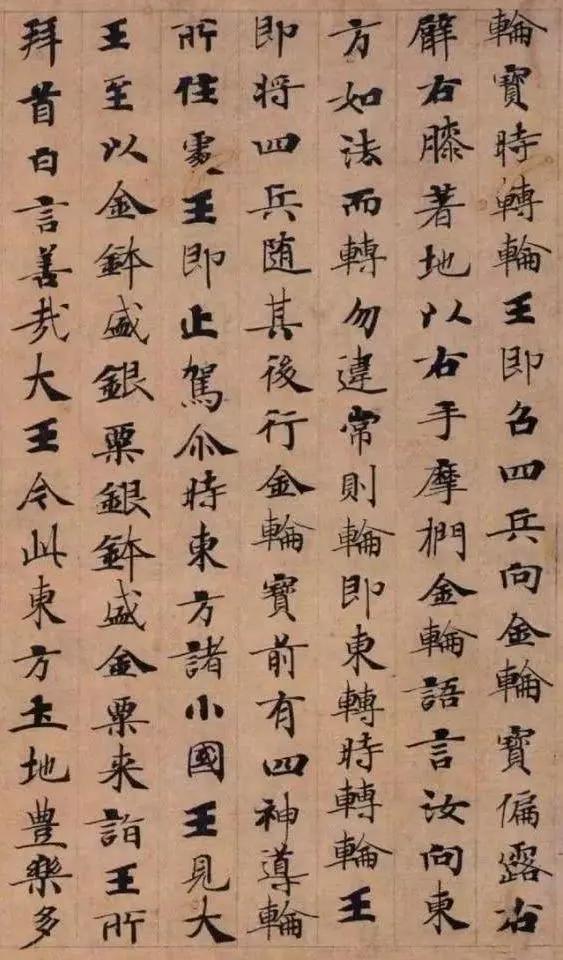 輪寶時轉輪王即召四兵向金輪寶偏露右
臂右膝著地以右手摩捫金輪語言汝向東
方如法而轉勿違常則輪即東轉時轉輪王
即將四兵随其後行金輪寶前有四神導輪
所住處王即止駕尒時東方諸小國王見大
王至以金鉢盛銀粟銀鉢盛金粟来詣王所
拜首白言善哉大王令此東方土地豊樂多